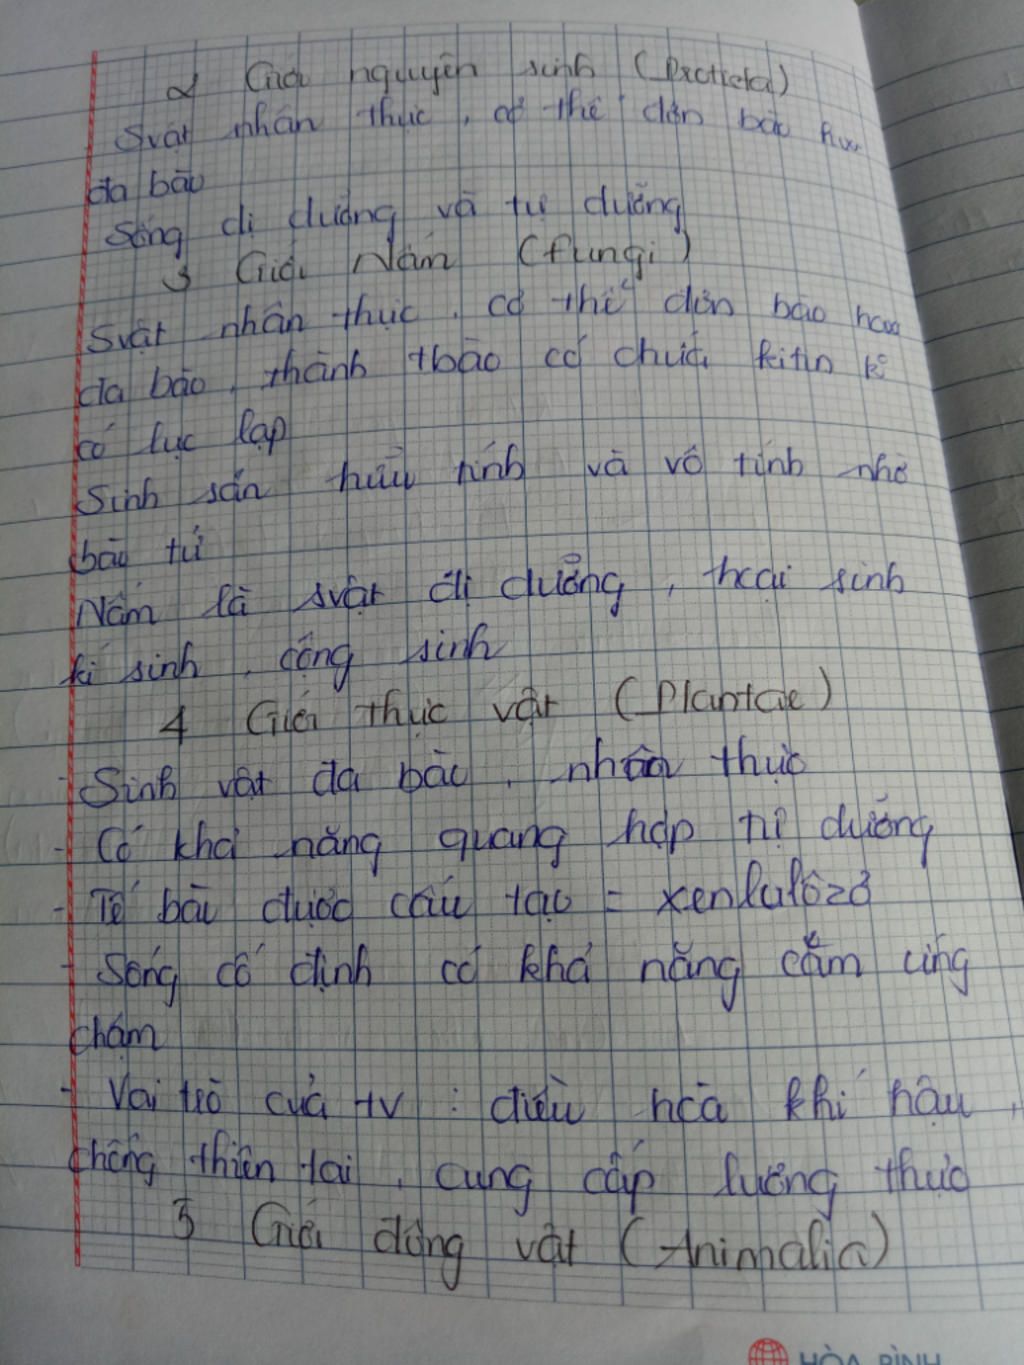 2 Giới nguyên sinh (Protista)
Svật nhân thực, cơ thể đơn bào hoặc
đa bào
Sống dị dưỡng và tự dưỡng
3 Giới Nấm (fungi)
Svật nhân thực, cơ thể đơn bào hoặc
đa bào, thành tbào có chứa kitin k
có lục lạp
Sinh sản hữu tính và vô tính nhờ
bào tử
Nấm là svật dị dưỡng, hoại sinh
kí sinh, cộng sinh
4 Giới thực vật (Plantae)
- Sinh vật đa bào, nhân thực
- Có khả năng quang hợp tự dưỡng
- Tế bào được cấu tạo = xenlulôzơ
- Sống cố định có khả năng cảm ứng
chậm
- Vai trò của tv: điều hoà khí hậu,
chống thiên tai, cung cấp lương thực
5 Giới động vật (Animalia)
HÒA BÌNH